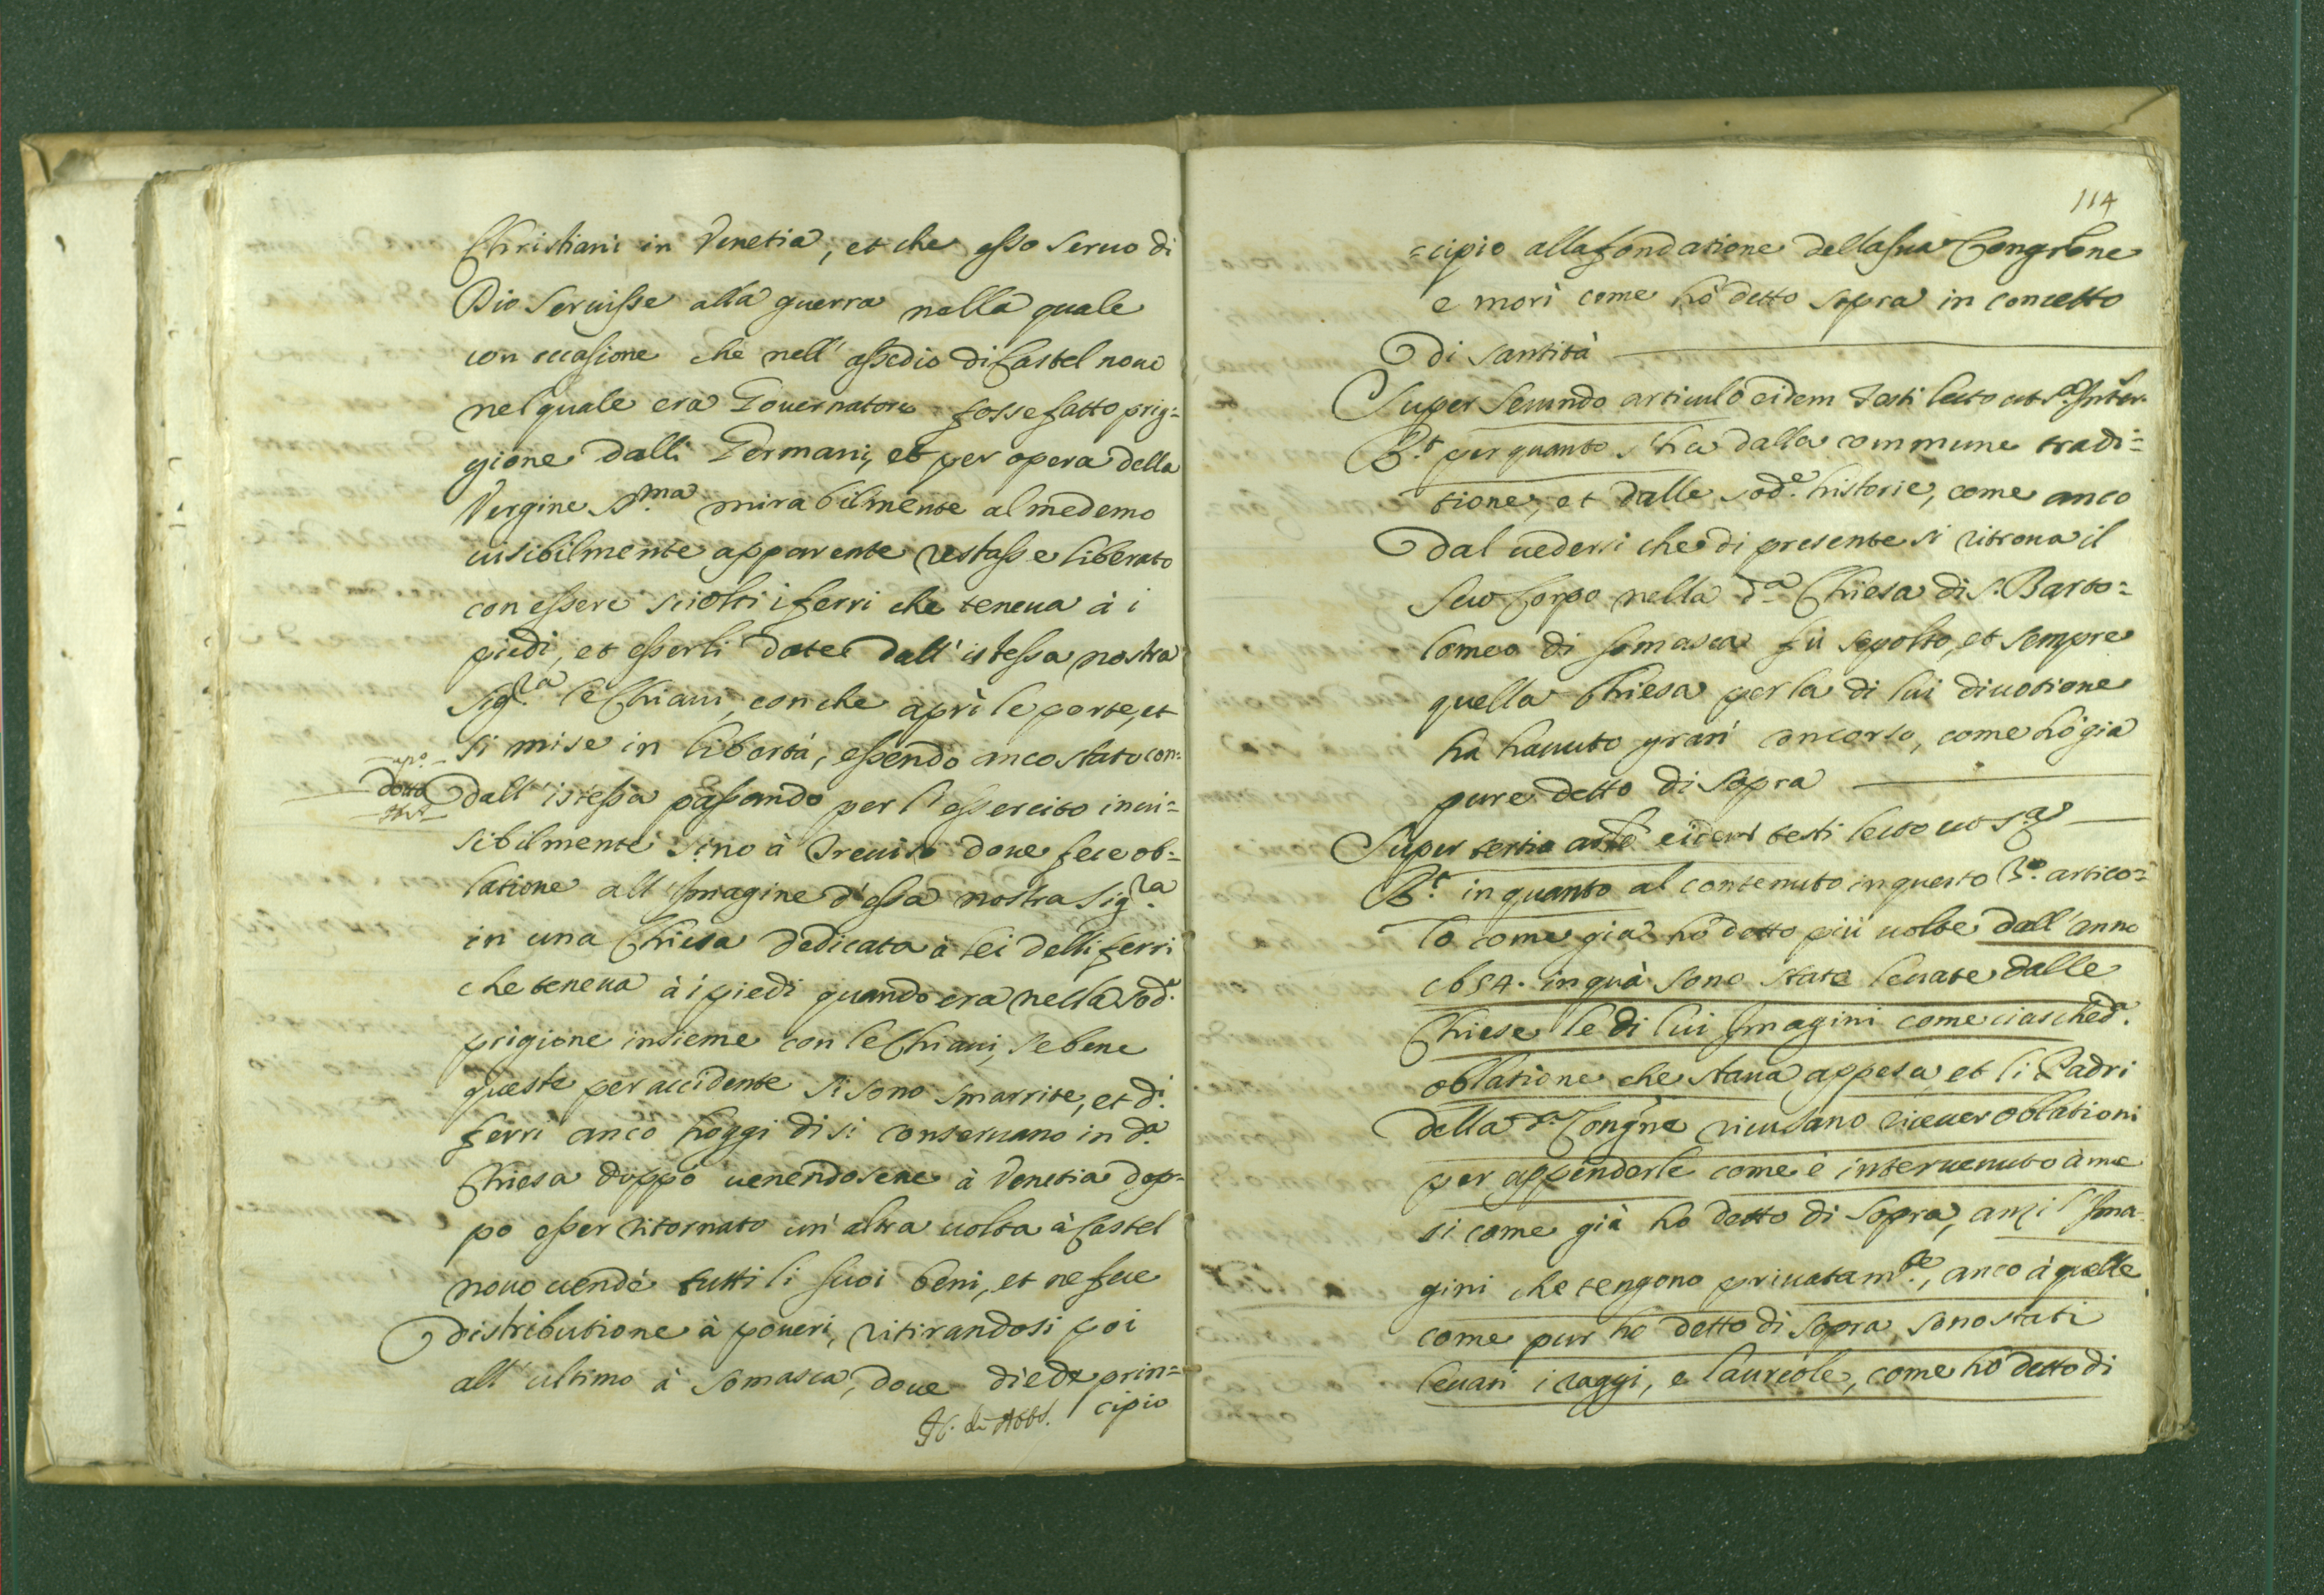 Christiani in Venetia, et che esso seruo di
Dio seruisse alla guerra nella quale
con occasione che nell' assedio di Castel nouo
nel quale era Gouernatore fosse fatto prig=
gione dalli Germani, et per opera della
Vergine S.ma mirabilmente al medemo
uisibilmente apparente restasse liberato
con essere sciolti i ferri che teneua à i
piedi, et esserli date dall' istessa nostra
Sig.ra le Chiaui, con che aprì le porte, et
si mise in libertà, essendo anco stato con=
dotto dall' istessa passando per l' essercito inui=
sibilmente sino à Treuiso doue fece ob=
latione all' Imagine d' essa nostra Sig.ra
in una Chiesa dedicata à lei delli ferri
che teneua à i piedi quando era nella sod.a
prigione insieme con le Chiaui, se bene
queste per accidente si sono smarrite, et d.i
ferri anco hoggi di si conseruano in d.a
Chiesa doppo uenendosene à Venetia dop=
po esser ritornato un' altra uolta à Castel
nouo uendè tutti li suoi beni, et ne fece
distributione à poueri, ritirandosi poi
all' ultimo à Somasca, doue diede prin=
cipio
114
=cipio alla fondatione della sua Congr.one
e morì come hò detto sopra in concetto
di santità
Super secundo articulo eidem testi lecto ut s.a
R.t per quanto s' hà dalla commune tradi=
tione, et dalle sod.e historie, come anco
dal uedersi che di presente si ritroua il
suo Corpo nella d.a Chiesa di S. Barto=
lomeo di Somasca fù sepolto, et sempre
quella Chiesa per la di lui diuotione
hà hauuto gran concorso, come hò già
pure detto di sopra
Super tertio art.lo eidem testi lecto ut s.a
R.t in quanto al contenuto in questo 3.o artico=
lo come già hò detto più uolte dall' anno
1654. in quà sono state leuate dalle
Chiese le di lui Imagini come ciasched.a
oblatione che staua appesa et li Padri
della d.a Congne ricusano riceuer oblationi
per appenderle come è interuenuto à me
si come già hò detto di sopra, anzi l' Ima=
gini che tengono priuatam.te, anco à quelle
come pur ho detto di sopra, sono stati
leuati i raggi, e laureole, come hò detto di